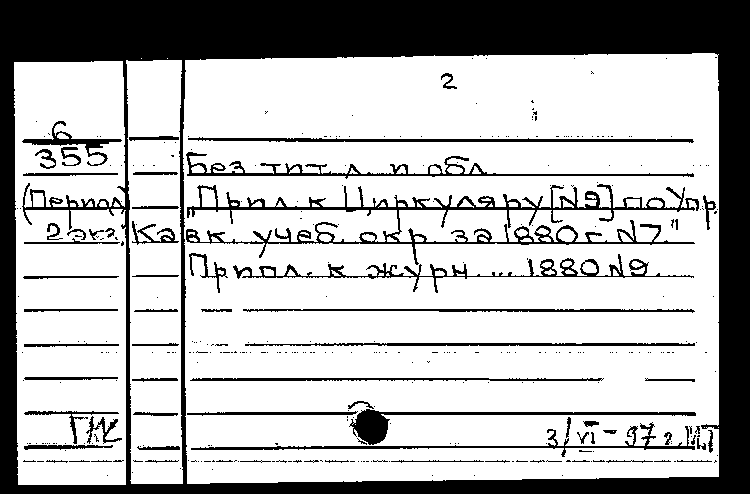 2
6
355
Без тит. л. и обл.
(Период) „Прил. к Циркуляру [№9] по Упр.
2 экз. Кавк. учеб. окр. за 1880 г. №7."
Припл. к журн. ... 1880 №9.
3/VI - 97 г.